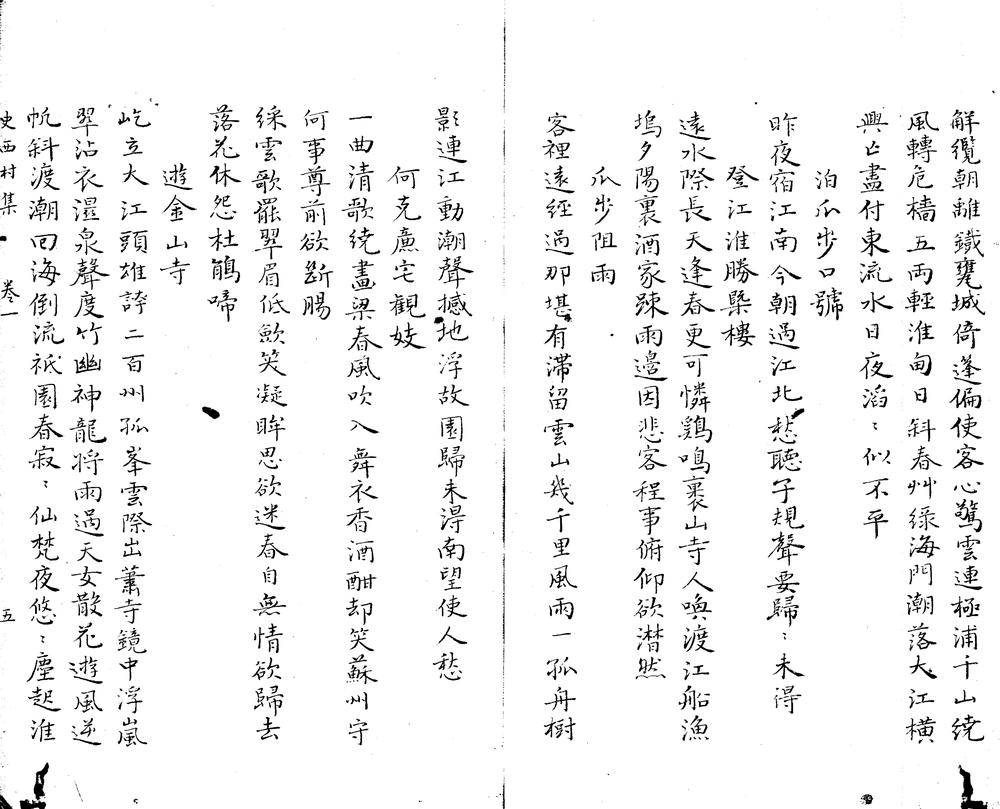 解纜朝離鐵甕城倚蓬偏使客心驚雲連極浦千山繞
風轉危檣五兩輕淮甸日斜春艸綠海門潮落大江橫
興亡盡付東流水日夜滔〻似不平
泊瓜步口號
昨夜宿江南今朝過江北愁聽子規聲要歸〻未得
登江淮勝槩樓
遠水際長天逢春更可憐鷄鳴裏山寺人喚渡江船漁
塢夕陽裏酒家踈雨邉因悲客程事俯仰欲潸然
瓜步阻雨
客裡遠經過那堪有滯留雲山幾千里風雨一孤舟樹
影連江動潮聲撼地浮故園歸未淂南望使人愁
何克亷宅觀妓
一曲清歌繞畫梁春風吹入舞衣香酒酣却笑蘇州守
何事尊前欲斷腸
綵雲歌罷翠眉低歛笑凝眸思欲迷春自無情欲歸去
落花休怨杜鵑啼
遊金山寺
屹立大江頭雄誇二百州孤峯雲際出蕭寺鏡中浮嵐
翠沾衣濕泉聲度竹幽神龍將雨過天女散花遊風逆
帆斜渡潮回海倒流祇園春寂〻仙梵夜悠〻塵起淮
史西村集 卷一 五